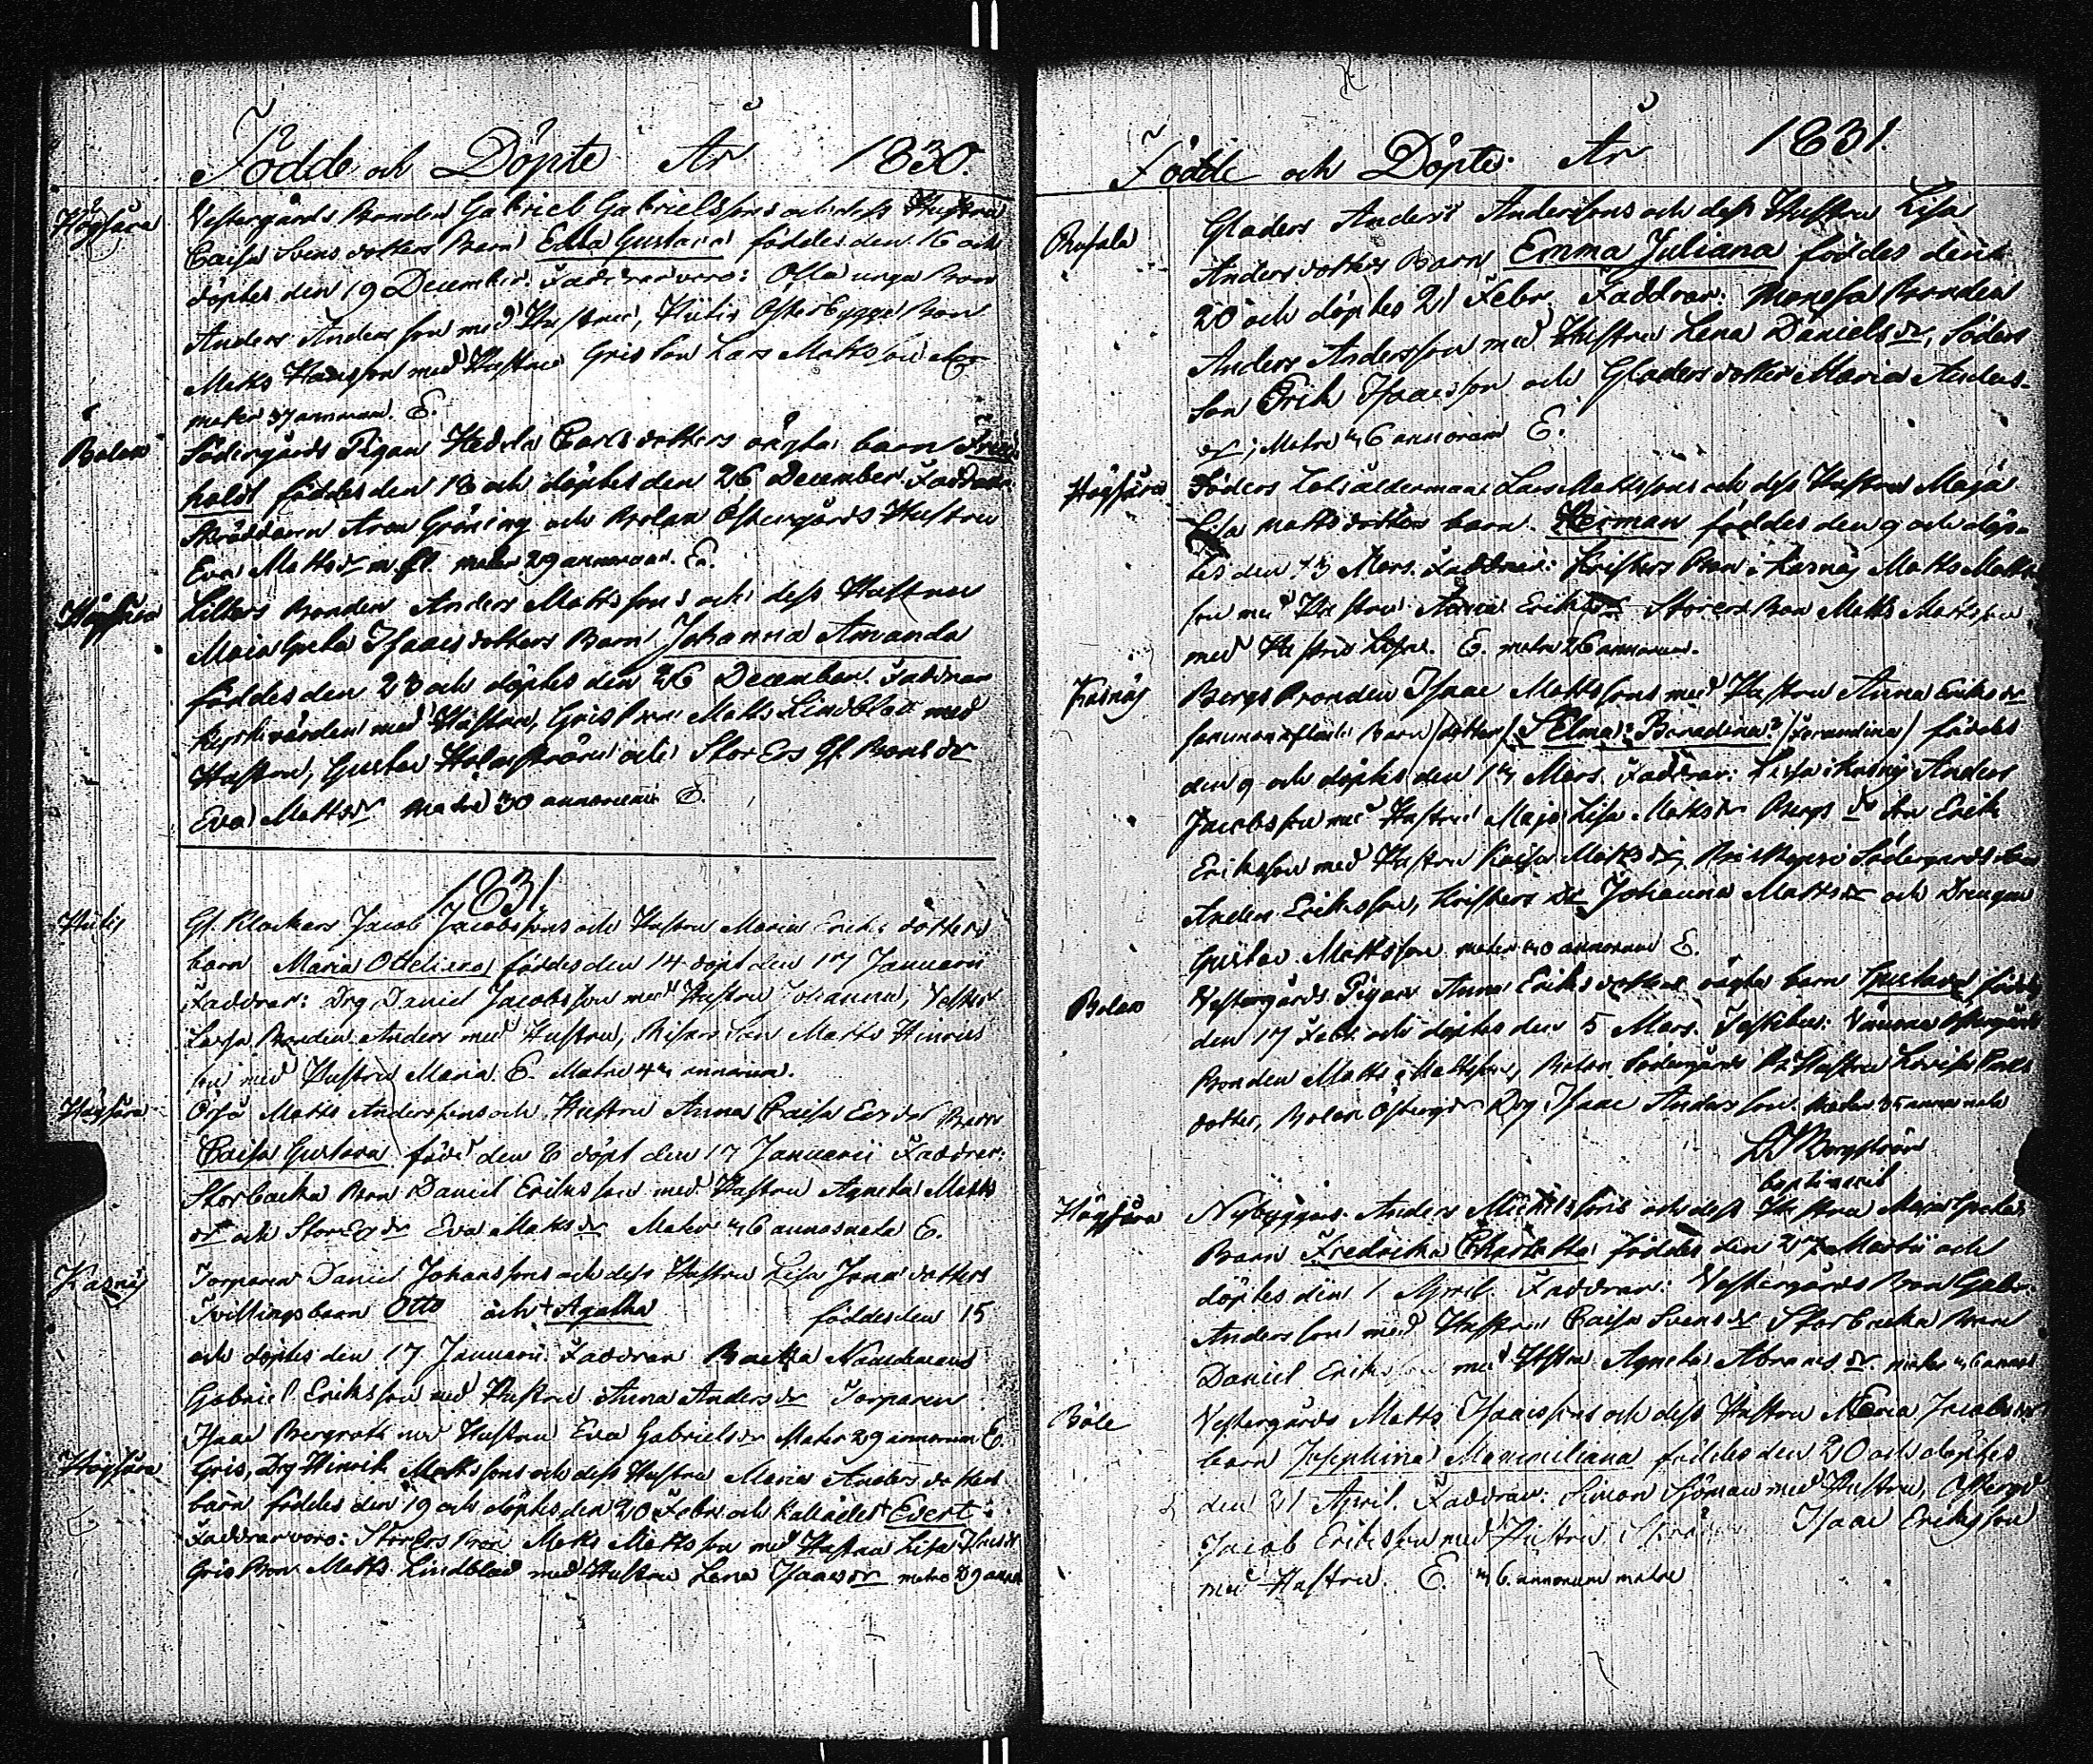 Födde och Döpte År 1830.
Högsåra
Vestergårds Bonden Gabriel Gabrielssons och dess Hustru
Caisa Svens dotters Barn Edla Gustava föddes den 16 och
döptes den 19 December. Faddrar voro: Olla unga Bon
Anders Andersson med Hustru, Hitis Österbygge Bon
Matts Hansson med Hustru Gris Son Lars Mattsson
mater 37 annorum. E.
Bolax
Södergårds Pigan Hedvila Carlsdotters oägta barn
holdt föddes den 16 och döptes den 26 December. Faddrar
Skräddaren Aron Gröning och Bolax Östergårds Hustru
Eva Matts dr m. fl. mater 29 annorum. E.
Högsåra
Lillers Bonden Anders Mattssons och dess Hustru
Maia Greta Isaacsdotters Barn Johanna Amanda
föddes den 23 och döptes den 26 December. Faddrar
Kyrkvärden med Hustru, Gris Bon Matts Lindblad med
Hustru, Gustav Holmström och Stor Ers Gl. Bons dr
Eva Matts dr mater 30 annorum E.
1831
Hitis
Gl. Klockars Jacob Jacobssons och Hustru Maria Eriks dotters
barn Maria Ottiliana föddes den 14 döpt den 17 Januarii
Faddrar: Drg Daniel Jacobsson med Hustru Johanna,
Bonden Anders med Hustru, Son Matts Hinrics
son med Hustru Maria. E. Mater annorum.
Högsåra
Örså Matts Anderssons och Hustru Anna Caisa Ers dr Barn
Caisa Gustava född den 6 döpt den 17 Januarii Faddrar:
Storbacka Bon Daniel Eriksson med Hustru Agneta Matts
dr och Stor Ers dr Eva Matts dr Mater annos nata E.
Kasnäs
Torparen Daniel Johanssons och dess Hustru Lisa Jona dotters
Tvillingsbarn Otto och Agatha föddes den 15
och döptes den 17 Januarii. Faddrar
Gabriel Eriksson med Hustru Anna Anders dr Torparen
Isaac Bergroth med Hustru Eva Gabriels dr Mater 29 annorum E.
Högsåra
Gris, Drg Hinrik Mattssons och dess Hustru Maria Anders dr
barn föddes den 19 och döptes den 20 Febr. och kallades Evert.
Faddrar voro: Stor Ers Bon Matts Mattsson med Hustru Lisa
Gris Bon Matts Lindblad med Hustru Lena Isaacs dr mater 29
Födde och Döpte År 1831.
Rosala
Gladers Anders Anderssons och dess Hustru Lisa
Anders dotters Barn Emma Juliana föddes den
20 och döptes 21 Febr. Faddrar: Bonden
Anders Andersson med Hustru Lena Daniels dr, Söders
Son Erik Isaacsson och Gladers dotter Maria Anders
dr; Mater annorum E.
Högsåra
Söders Lotsålderman Lars Mattssons och dess Hustru Maja
Lisa Mattsdotters barn Herman föddes den 9 och döp-
tes den 13 Mars. Faddrar: Kristers Bon i Kasnäs Matts Matts
son med Hustru Anna Eriks dr Storers Bon Matts Mattsson
med Hustru Lisa. E. mater 26 annorum.
Kasnäs
Bergs Bonden Isaac Mattssons med Hustru Anna Eriks dr
sammanaflade Barn (dotter) Selma? Beradina? (Ferandina) föddes
den 9 och döptes den Mars. Faddrar: Anders
Jacobsson med Hustru Maja Lisa Matts dr Bergs Erik
Eriksson med Hustru Kaisa Matts dr, Södergårds
Anders Eriksson, Kristers dr Johanna Matts dr och Drengen
Gustav Mattsson mater 40 annorum E.
Bolax
Vestergårds Pigan Anna Eriks dotters oägta barn Gustava föddes
den 17 Febr. och döptes den 5 Mars. Testibus: Vänoxa Östergårds
Bonden Matts Mattsson, Bolax Södergårds Hustru Lovisa Carls
dotter, Bolax Östergårds Drg Isaac Andersson. Mater 35 annos nata
Bergström
baptiserat
Högsåra
Nybyggars Anders Michelssons och dess Hustru Maja Greta
Barn Fredrika Charlotta föddes den 27 Martii och
döptes den 1 April. Faddrar: Vestergårds Bon Gabr.
Andersson med Hustru Caisa Svens dr Storbacka Bon
Daniel Eriksson med Hustru Agneta Abrams dr. mater
Böle
Vestergårds Matts Isaacssons och dess Hustru Maria Jacobs dr
barn Josephina Maximiliana föddes den 20 och döptes
den 21 April. Faddrar: Simon Sjöman med Hustru, Östergd
Jacob Eriksson med Hustru Isaac Eriksson
med Hustru. E. annorum mater